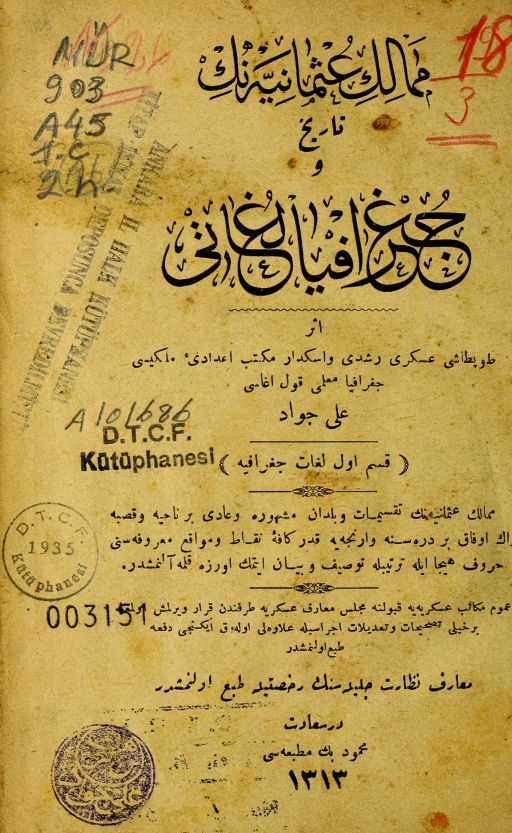 ممالك عثمانیه‌نك
تاریخ
و
جغرافیا لغاتی
اثر
طوپطاشی عسکری رشدی واسکدار مکتب اعدادئ ملکیسی
جغرافیا معلمی قول اغاسی
علی جواد
( قسم اول لغات جغرافیه )
ممالك عثمانیه‌نك تقسیمات وبلدان مشهوره وعادی بر ناحیه وقصبه
اوفاق بر دره‌سنه وارنجه‌یه قدر کافهٔ نقاط ومواقع معروفه‌سنی
حروف هیجا ایله ترتیبله توصیف و بیان ایتمك اوزره قلمه آلنمشدر.
عموم مکاتب عسکریه‌یه قبولنه مجلس معارف عسکریه طرفندن قرار ویرلمش
برخیلی تصحیحات وتعدیلات اجراسیله علاوه‌لی اوله‌رق ایکنجی دفعه
طبع اولنمشدر
معارف نظارت جلیله‌سنك رخصتیله طبع اولنمشدر
درسعادت
محمود بك مطبعه‌سی
١٣١٣
MÜR
903
A45
1.C
18
3
ANKARA İL HALK KÜTÜPHANESİ
A101686
D.T.C.F.
Kütüphanesi
D.T.C.F.
1935
Kütüphanesi
003151